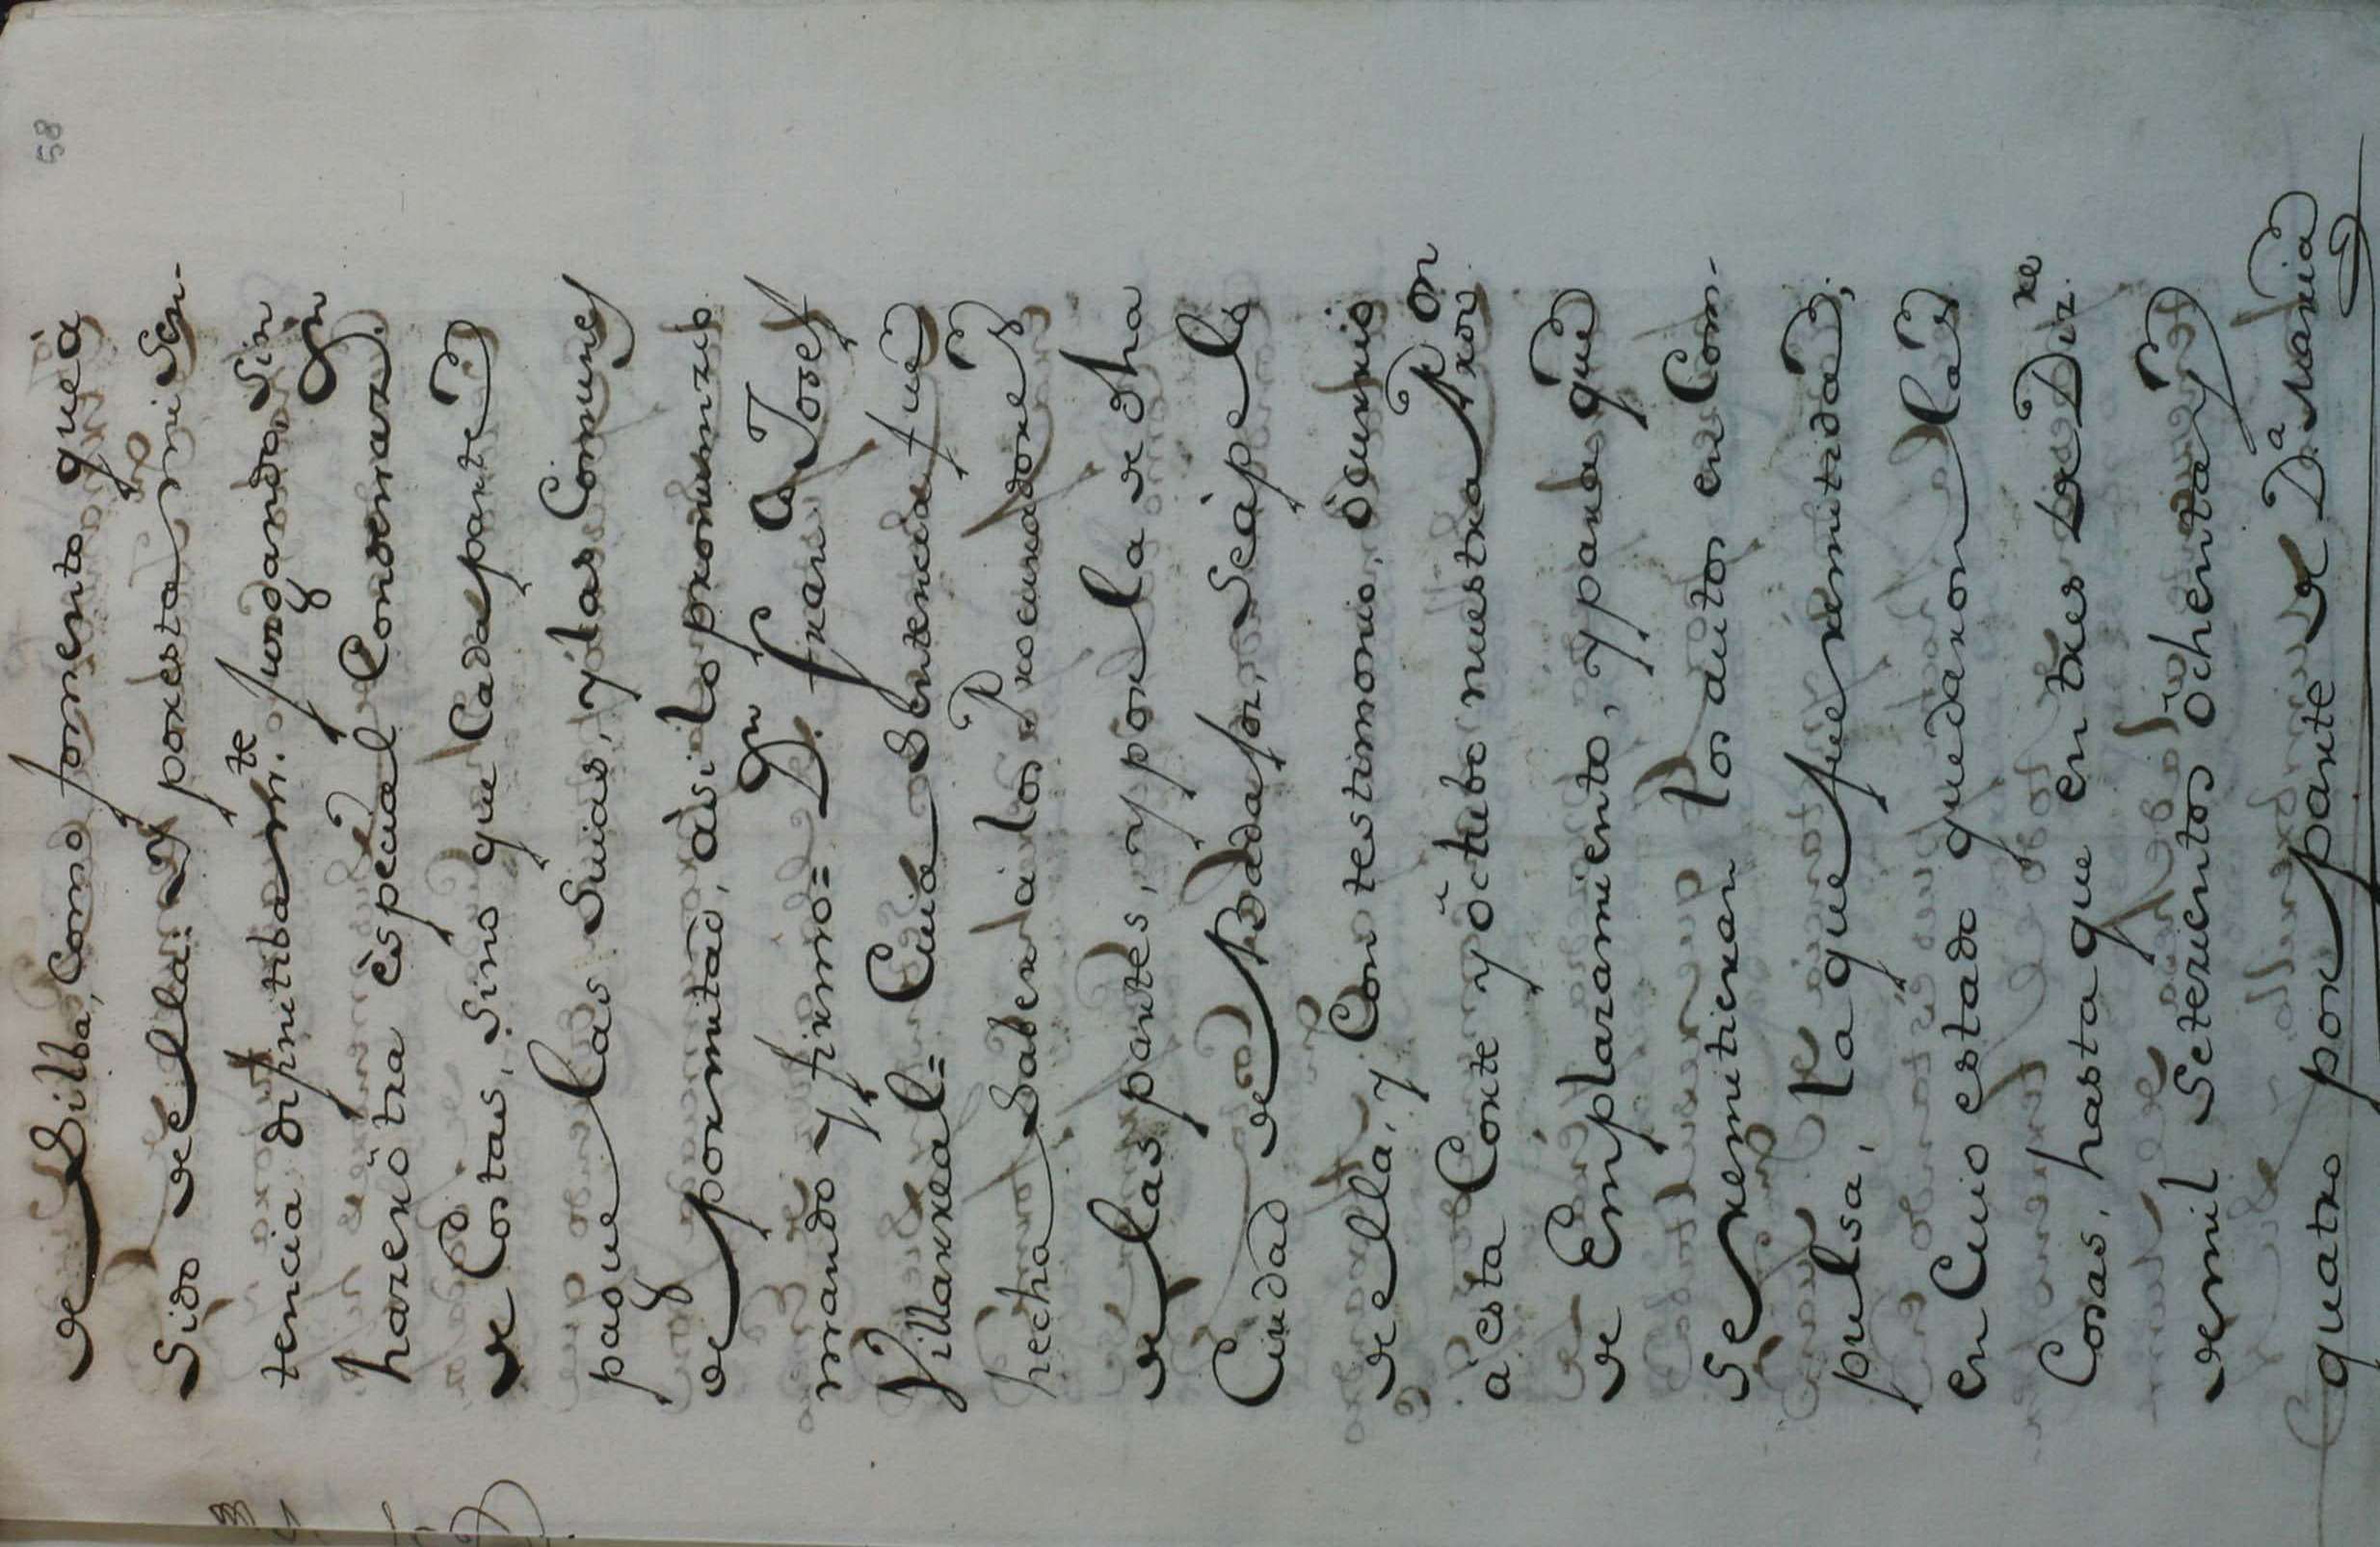 58
de Silba, Como fomento que à
sido de ella: Y por esta mi Sen-
tencia difinitibam.te Juzgando Sin
hazer ótra èspecial Condenaz.on
de Costas, sino que Cada parte
pague las Suias, y las Comunes
de por mitad, àsi lo pronunzio
mando y firmo = D.n Fran.co Josef
Villarreal = Cuia Sentencia fue
hecha Saber à los Procuradores
de las partes, y por la de dha
Ciudad de Badajoz, Se àpeló
de ella, y Con testimonio, ócurrio
à esta Corte y óctubo nuestra R.l Prov.on
de Emplazamiento, y para que
Se remitieran los autos en Com-
pulsa, la que fue remitida;
en Cuio estado quedaron las
Cosas, hasta que en tres de Diz.re
de mil Setezientos óchenta y
quatro por parte de D.a Maria